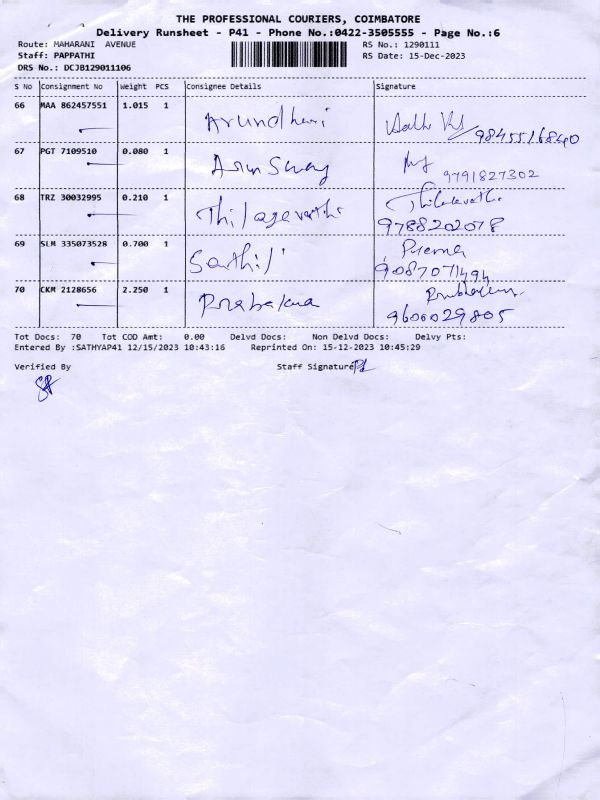 THE PROFESSIONAL COURIERS, COIMBATORE
Delivery Runsheet - P41 - Phone No.:0422-3505555 - Page No.:6
Route: MAHARANI AVENUE RS No.: 1290111
Staff: PAPPATHI RS Date: 15-Dec-2023
DRS No.: DCJB129011106
S No Consignment No Weight PCS Consignee Details Signature
66 MAA 862457551 1.015 1 Arundheri
9845516840
67 PGT 7109510 0.080 1 Arun Swamy
9791827302
68 TRZ 30032995 0.210 1 Thilagavathi Thilakavathi
9788202078
69 SLM 335073528 0.700 1 Senthil Prema
9087071494
70 CKM 2128656 2.250 1 Prabakara
9600029805
Tot Docs: 70 Tot COD Amt: 0.00 Delvd Docs: Non Delvd Docs: Delvy Pts:
Entered By :SATHYAP41 12/15/2023 10:43:16 Reprinted On: 15-12-2023 10:45:29
Verified By Staff Signature